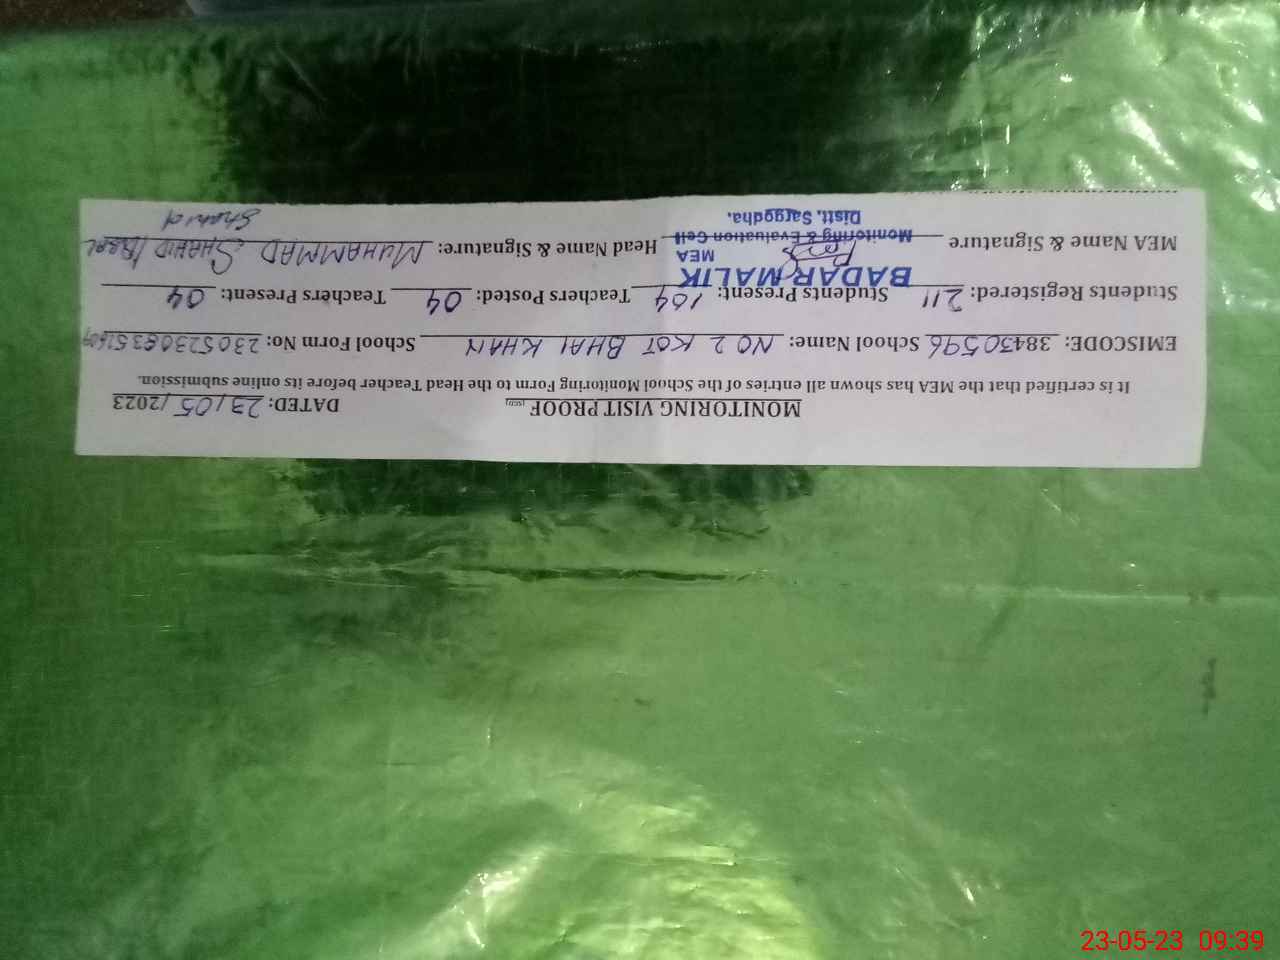 MONITORING VISIT PROOF DATED: 23/05/2023
It is certified that the MEA has shown all entries of the School Monitoring Form to the Head Teacher before its online submission.
EMISCODE: 38430596 School Name: NO 2 KOT BHAI KHAN School Form No:
Students Registered: 211 Students Present: 164 Teachers Posted: 04 Teachers Present: 04
BADAR MALIK
MEA
MEA Name & Signature Head Name & Signature: MUHAMMAD SHAHID IQBAL
Monitoring & Evaluation Cell
Distt. Sargodha.
Shahid
23-05-23 09:39